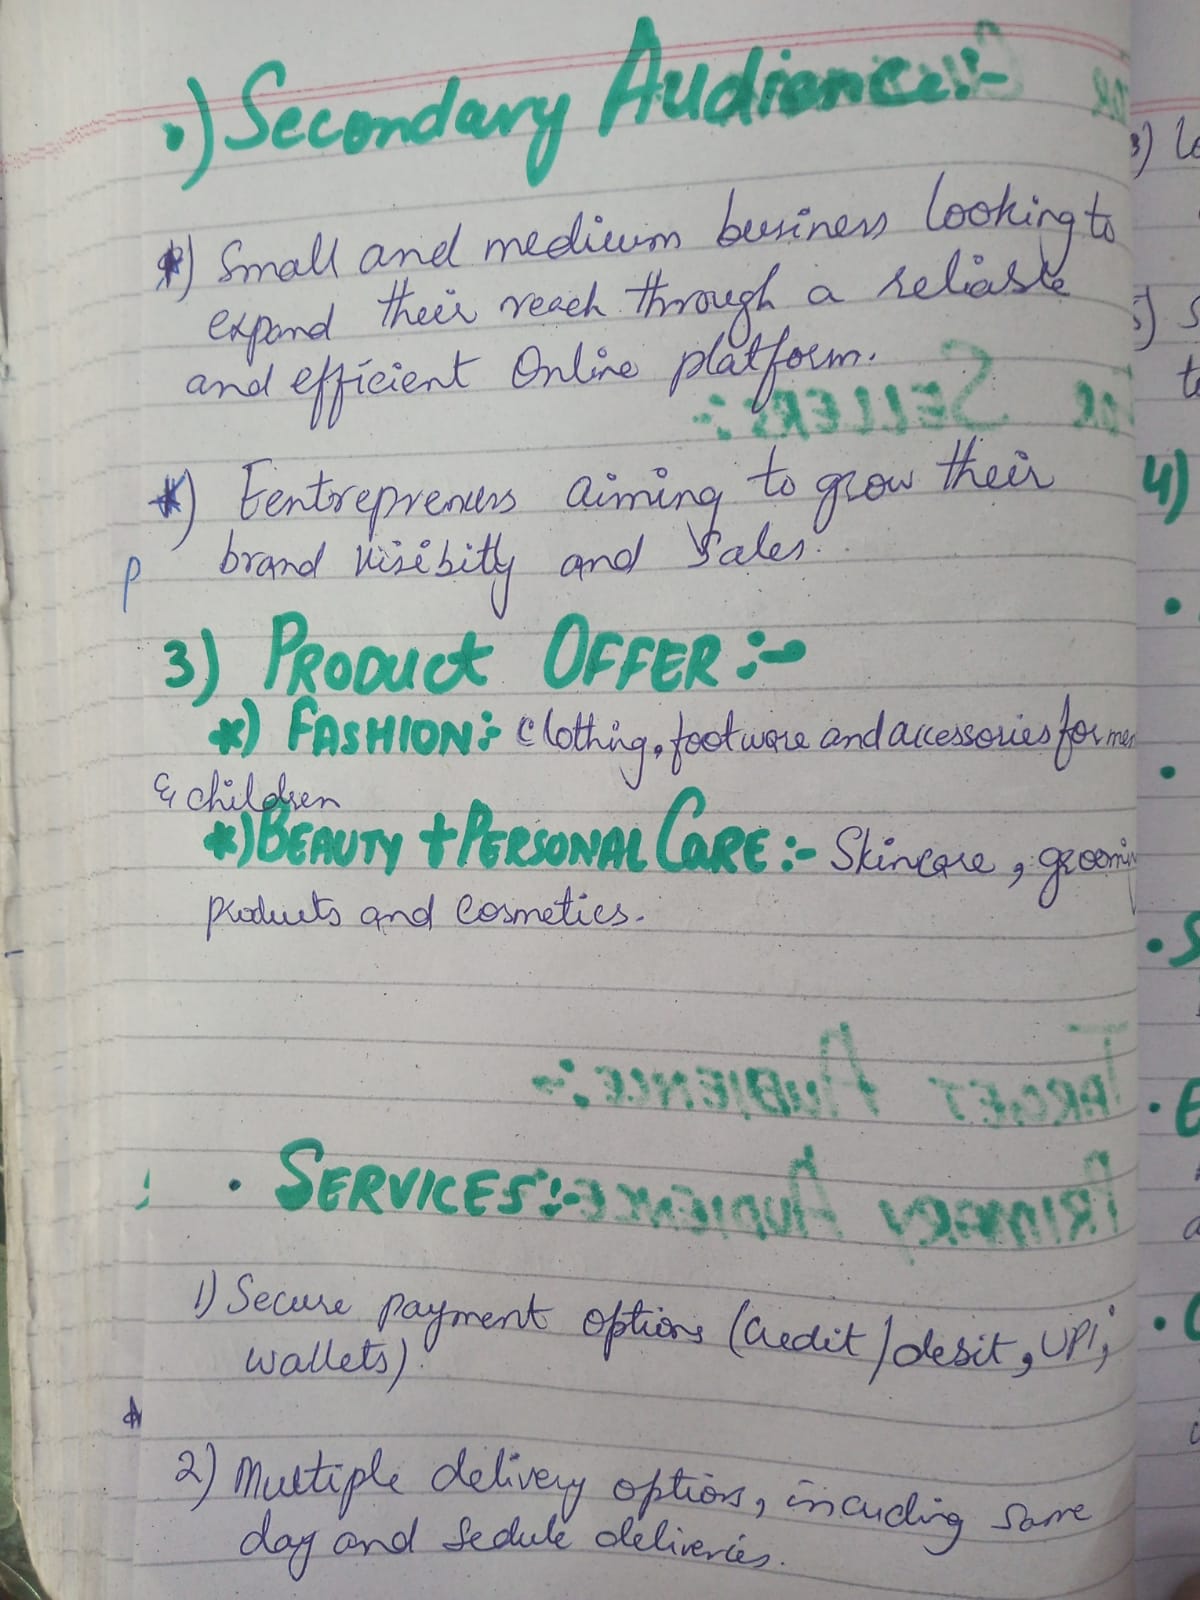 •) Secondary Audience:-
*) Small and medium business looking to
expand their reach through a reliable
and efficient Online platform.
*) Eentreprenurs aiming to grow their
brand visibitly and Sales.
P
3) PRODUCT OFFER :-
*) FASHION:- Clothing, footware and accessories for men
& children
*) BEAUTY + PERSONAL CARE :- Skincare, grooming
products and Cosmetics.
• SERVICES:-
1) Secure payment options (Credit / debit, UPI,
wallets).
2) Multiple delivery options, incuding same
day and Sedule deliveries.
4)